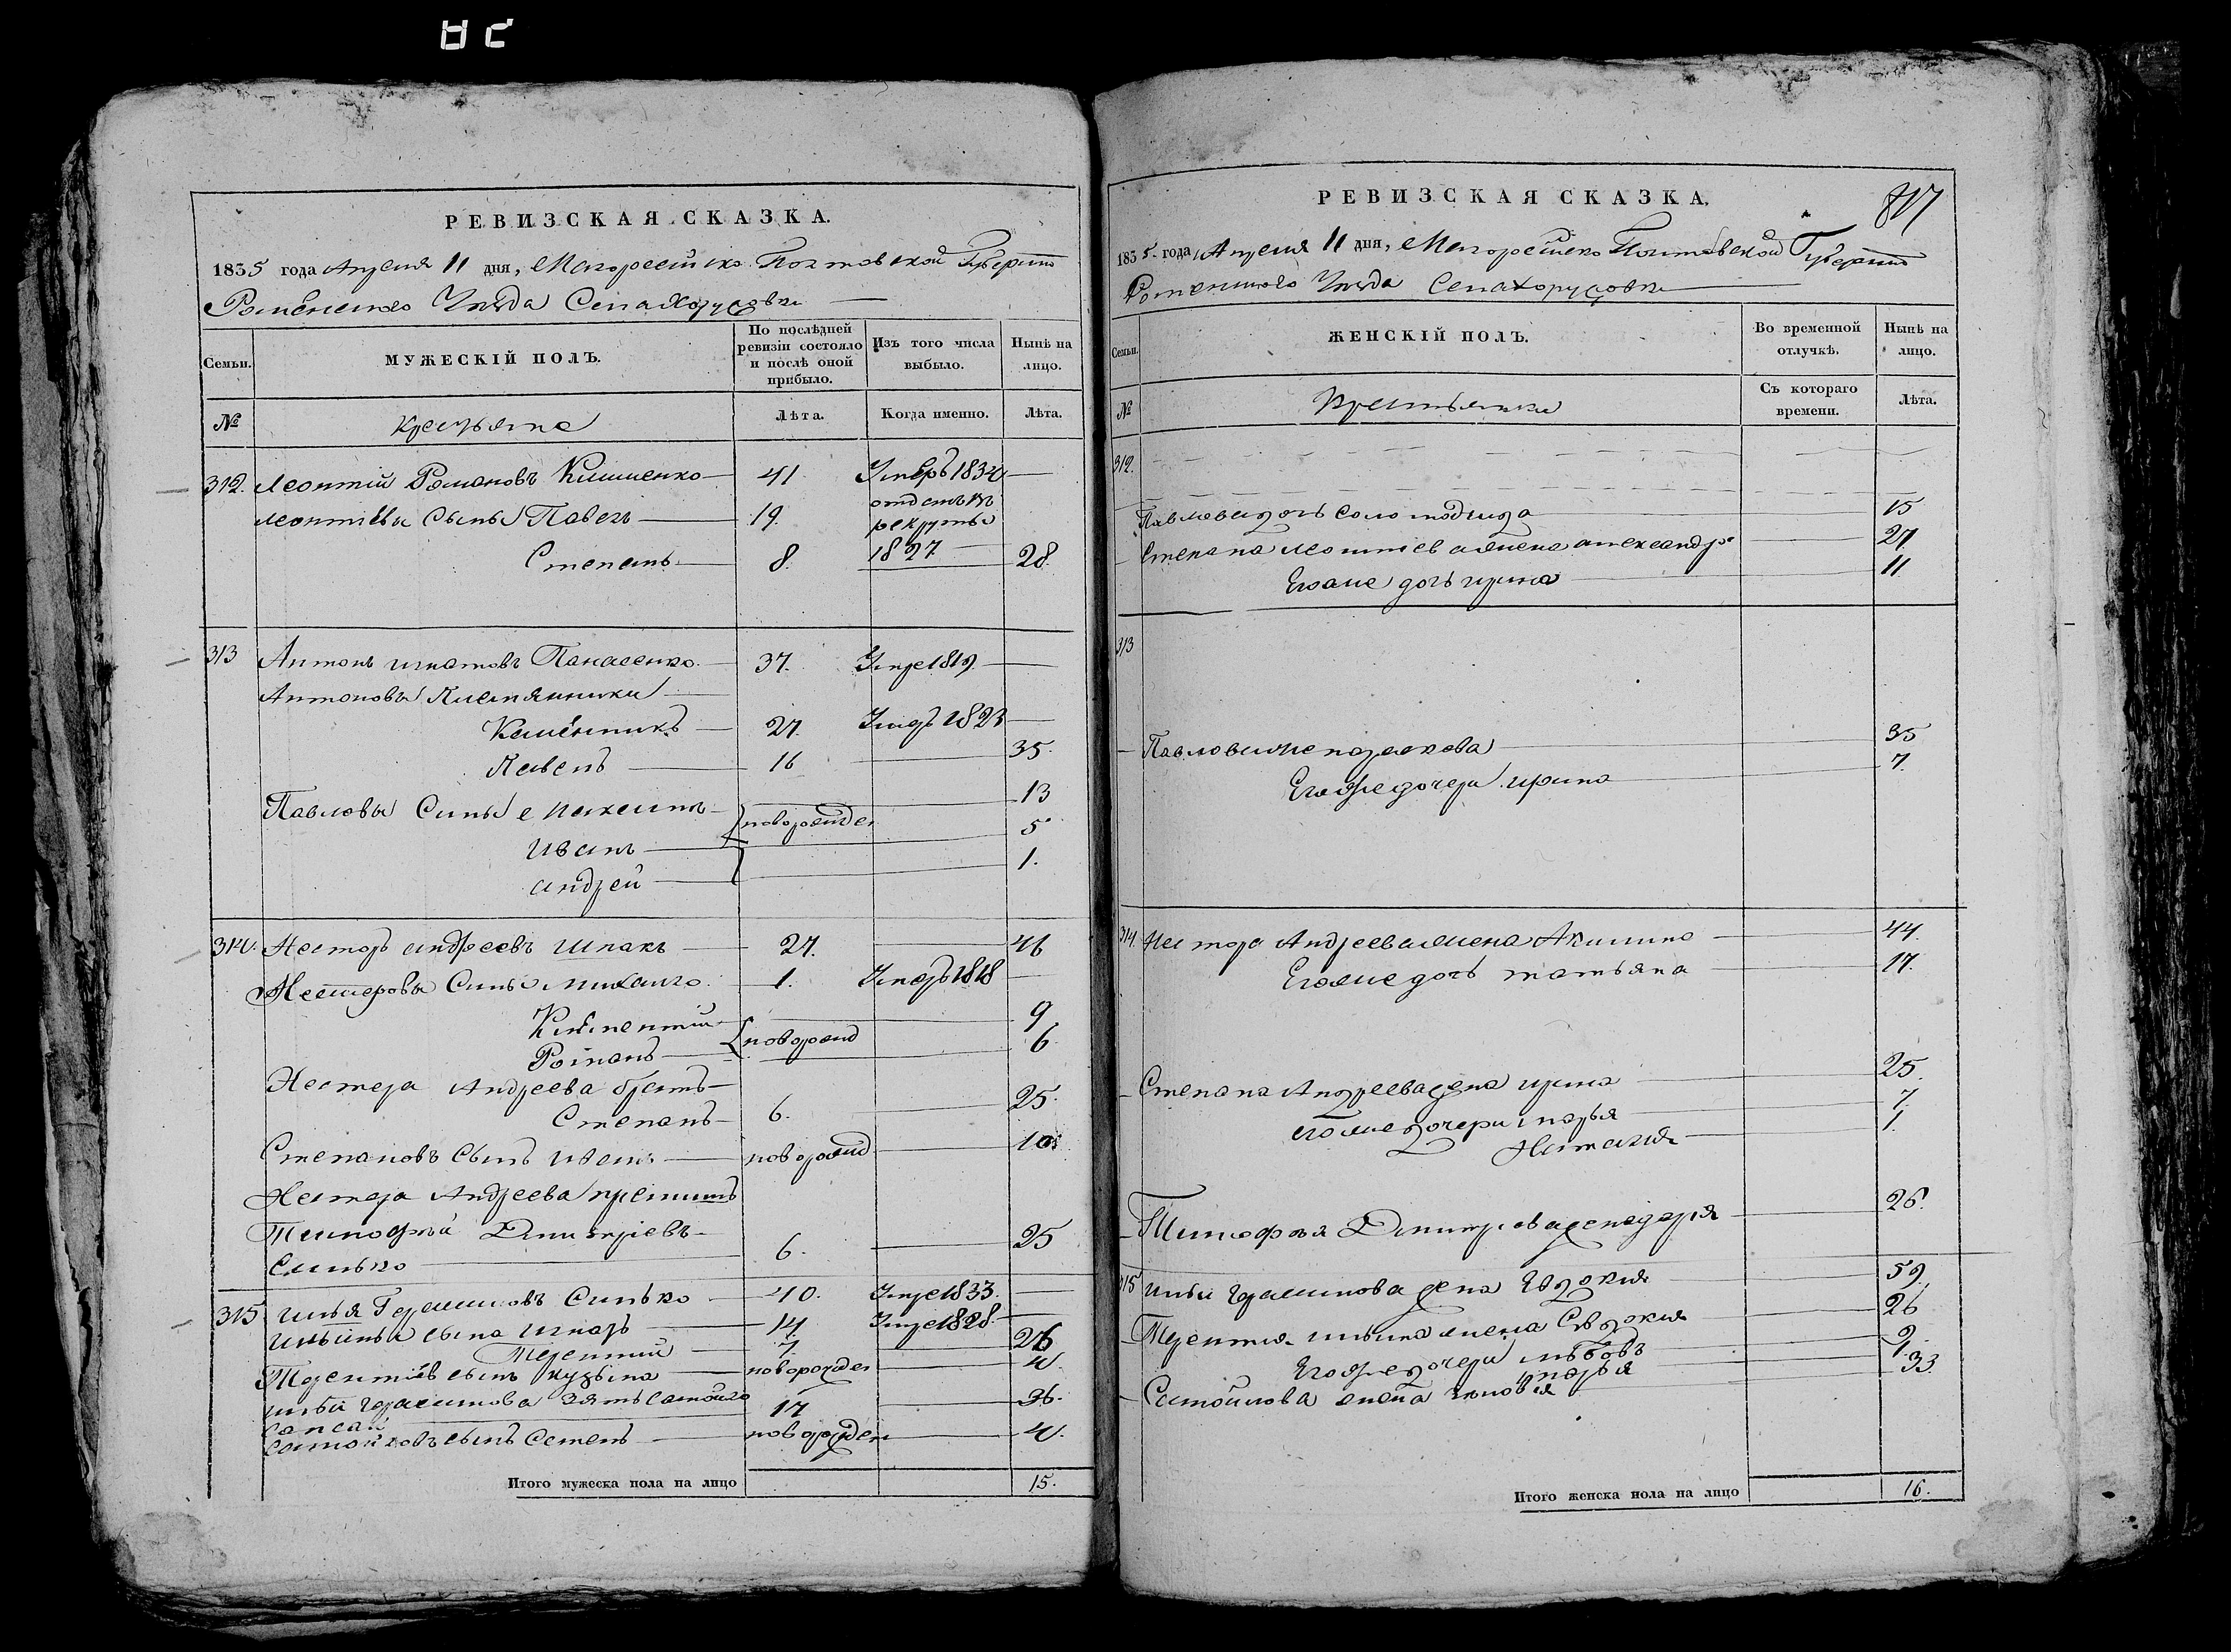 РЕВИЗСКАЯ СКАЗКА.
1835 года Апреля 11 дня, Малоросейско Полтавской Губернии
Роменского Уезда Села Хоружовки
Семьи.
МУЖЕСКІЙ ПОЛЪ.
По послѣдней ревизіи состояло и послѣ оной прибыло.
Изъ того числа выбыло.
Нынѣ на лицо.
№
Крестьяне
Лѣта.
Когда именно.
Лѣта.
312. Леонтій Романовъ Клименко 41 Умеръ 1834
Леонтіевы Сыны Павелъ 19. отданъ въ рекруты 1827
Степанъ 8. 28.
313 Антонъ Игнатовъ Панасенко 37. Умре 1819.
Антоновы Племянники
Климентий 27. Умеръ 1823
Павелъ 16 35.
Павловы Сыны 13
новорожден
Иванъ 5
Андрей 1.
314. Несторъ Андреевъ Шпакъ 27. 46
Нестеровы Сыны Михайло 1. Умеръ 1818
9
новорожд
Романъ 6
Нестера Андреева братъ
Степанъ 6. 25.
Степановъ Сынъ Иванъ новорожд 10
Нестера Андреева
Тимофѣй Дмитріевъ
Синько 6. 25
315 Илья Герасимовъ Синько 40. Умре 1833.
Ильины сына Игнатъ 14. Умре 1828.
Терентий 7. 26
Терентіевъ сынъ Кузьма новорожден 4.
Ильи Герасимова Зять Самойло 17 36.
Сапсай
Самойловъ сынъ Семенъ новорожден 4.
Итого мужеска пола на лицо 15.
РЕВИЗСКАЯ СКАЗКА.
817
1835 года Апреля 11 дня, Малоросейско Полтавской Губернии
Роменского Уезда Села Хоружовки
Семьи.
ЖЕНСКІЙ ПОЛЪ.
Во временной отлучкѣ.
Нынѣ на лицо.
№
Крестьянки
Съ котораго времени.
Лѣта.
312.
Павлова дочь Соломонида 15
Степана Леонтіева жена Александра 27
Егоже дочь Ирина 11
313
Павлова жена 35
Егоже дочери Ирина 7.
314. Нестора Андреева жена Акилина 44.
Егоже дочь Татьяна 17.
Степана Андреева жена Ирина 25.
егоже дочери Марья 7
Наталия 1.
Тимофея Дмитриева жена Дарья 26.
315 Ильи Герасимова жена Евдокия 59.
Терентия Ильина жена Евдокия 26
Егоже дочери Любовъ 9.
Марья 1.
Самойлова жена 33
Итого женска пола на лицо 16.